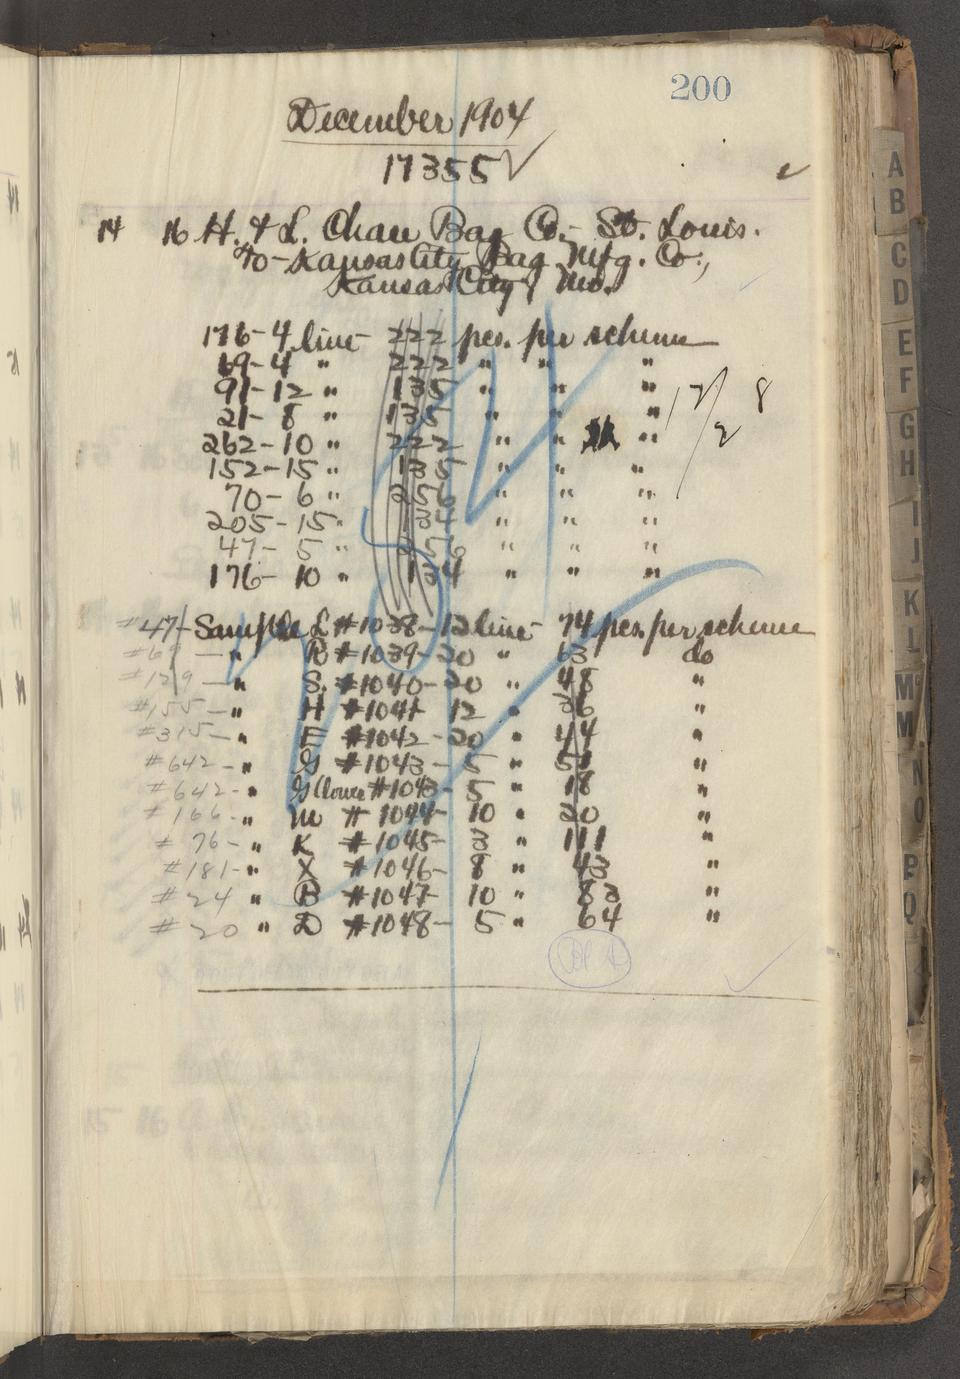 200
December 1904
17355 ✓
14 16 H. & L. Chase Bag Co.- St. Louis.
℅-Kansas City Bag Mfg. Co.,
Kansas City, Mo.
176-4 line 222 pcs. per scheme
69-4 " 222 " " "
91-12 " 135 " " "
21-8 " 135 " " "
12/2 8
262-10 " 222 " "
152-15 " 135 " " "
70-6 " 256 " " "
205-15 " 134 " " "
47-5 " 256 " " "
176-10 " 134 " " "
#47- Sample L #1038-12 line 74 pcs. per scheme
#69 — " R #1039-20 " 63 do
#129 — " S. #1040-20 " 48 "
#155- " H #1041 12 " 36 "
#315- " E #1042-20 " 44 "
#642- " G #1043-5 " 51 "
#642- " G (lower #1043-5 " 18 "
#166- " M #1044-10 " 20 "
#76- " K #1045-3 " 111 "
#181- " X #1046-8 " 43 "
#24 - " B #1047 10 " 82 "
#20 " D #1048-5 " 64 "
A
B
C
D
E
F
G
H
I
J
K
L
Mc
M
N
O
P
Q